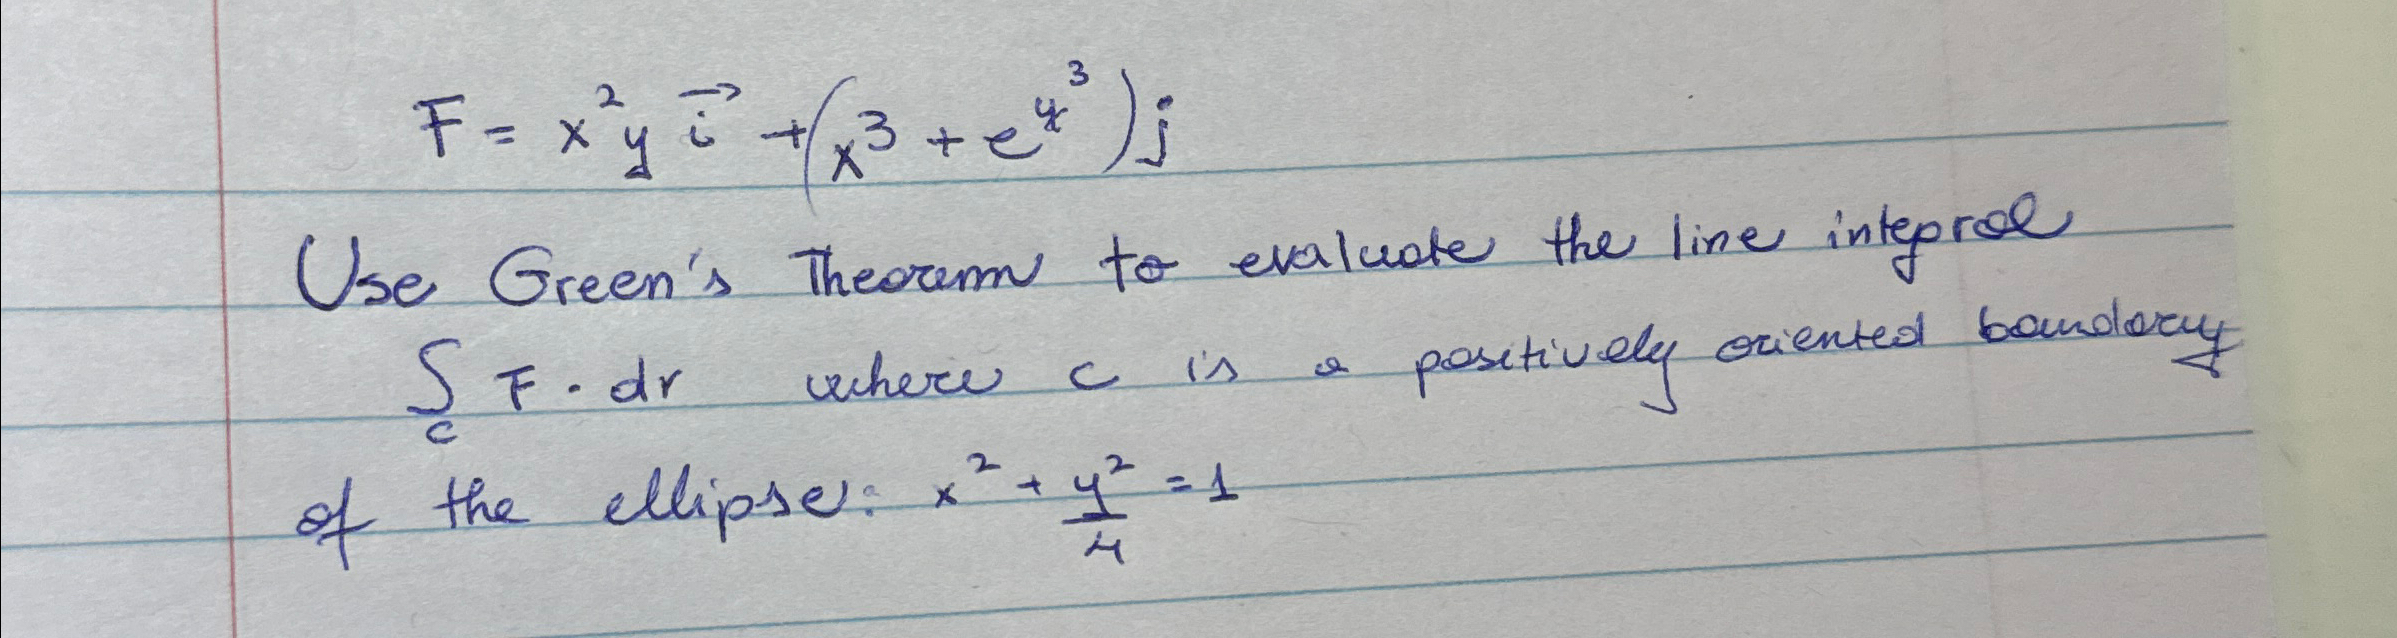 F = x²y i⃗ + (x³ + e^{y³}) j
Use Green's Theorem to evaluate the line integral
∫_c F · dr where c is a positively oriented boundary
of the ellipse: x² + y²/4 = 1